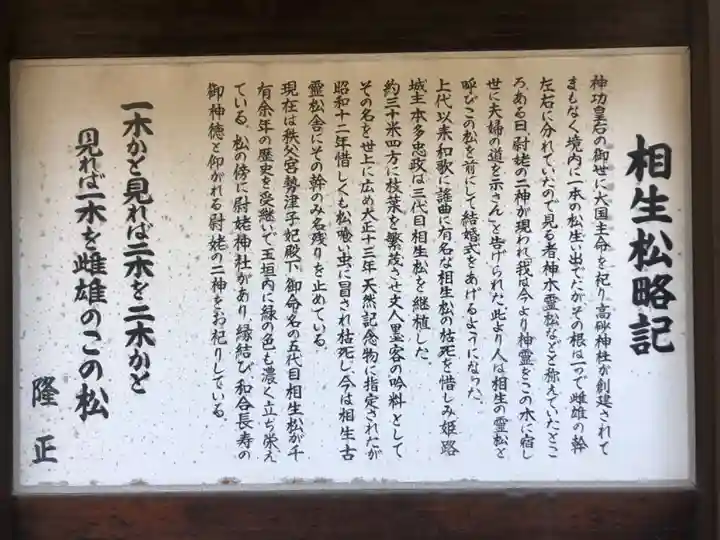 相生松略記
神功皇后の御世に大国主命を祀り高砂神社が創建されて
まもなく境内に一本の松生い出でたがその根は一つで雌雄の幹
左右に分れていたので見る者神木霊松などと称えていたとこ
ろ、ある日、尉姥の二神が現われ「我は今より神霊をこの木に宿し
世に夫婦の道を示さん」と告げられた此より人は相生の霊松と
呼びこの松を前にして結婚式をあげるようになった。
上代以来和歌に謡曲に有名な相生松の枯死を惜しみ姫路
城主本多忠政は三代目相生松を継植した。
約三十米四方に枝葉を繁茂させ文人墨客の吟料として
その名を世上に広め大正十三年天然記念物に指定されたが
昭和十二年惜しくも松喰い虫に冒され枯死し今は相生古
霊松舎にその幹のみ名残りを止めている。
現在は秩父宮勢津子妃殿下御命名の五代目相生松が千
有余年の歴史を受継いで玉垣内に緑の色も濃く立ち栄え
ている。松の傍に尉姥神社があり、縁結び、和合長寿の
御神徳と仰がれる尉姥の二神をお祀りしている。
一木かと見れば二木を二木かと
見れば一木を雌雄のこの松
隆正